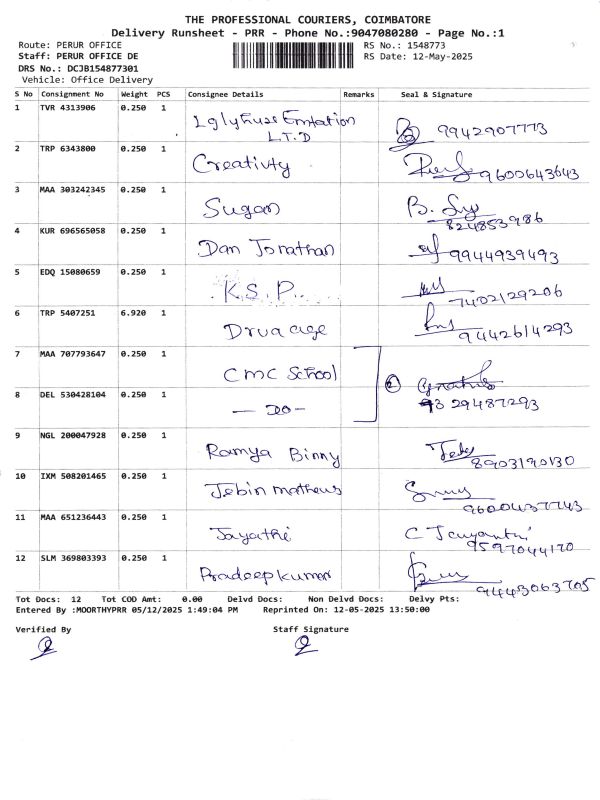 THE PROFESSIONAL COURIERS, COIMBATORE
Delivery Runsheet - PRR - Phone No.:9047080280 - Page No.:1
Route: PERUR OFFICE RS No.: 1548773
Staff: PERUR OFFICE DE RS Date: 12-May-2025
DRS No.: DCJB154877301
Vehicle: Office Delivery
S No Consignment No Weight PCS Consignee Details Remarks Seal & Signature
1 TVR 4313906 0.250 1
L.T.D 9942907773
2 TRP 6343800 0.250 1 Creativty 9600643643
3 MAA 303242345 0.250 1 Sugan B.
824853986
4 KUR 696565058 0.250 1 Dan Jonathan 9944939493
5 EDQ 15080659 0.250 1 K.S.P. 7402129206
6 TRP 5407251 6.920 1 9442614293
7 MAA 707793647 0.250 1 CMC School
8 DEL 530428104 0.250 1 - DO - 9329487293
9 NGL 200047928 0.250 1 Ramya Binny 8903190130
10 IXM 508201465 0.250 1 Jebin matheus 9600437743
11 MAA 651236443 0.250 1 Jayathi C Jeuyanthi
9597044170
12 SLM 369803393 0.250 1 Pradeepkumar 9443063705
Tot Docs: 12 Tot COD Amt: 0.00 Delvd Docs: Non Delvd Docs: Delvy Pts:
Entered By :MOORTHYPRR 05/12/2025 1:49:04 PM Reprinted On: 12-05-2025 13:50:00
Verified By Staff Signature